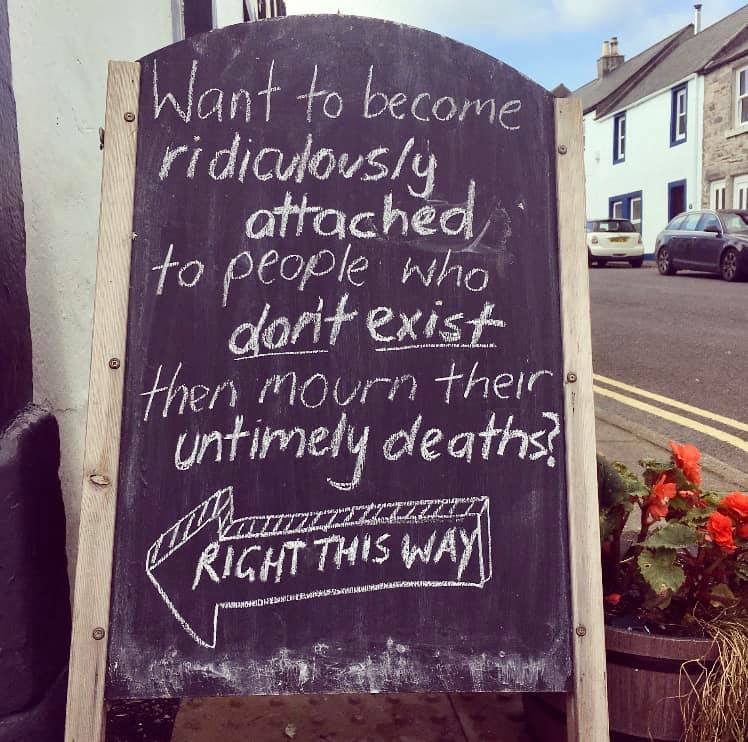 Want to become
ridiculously
attached
to people who
don't exist
then mourn their
untimely deaths?
RIGHT THIS WAY